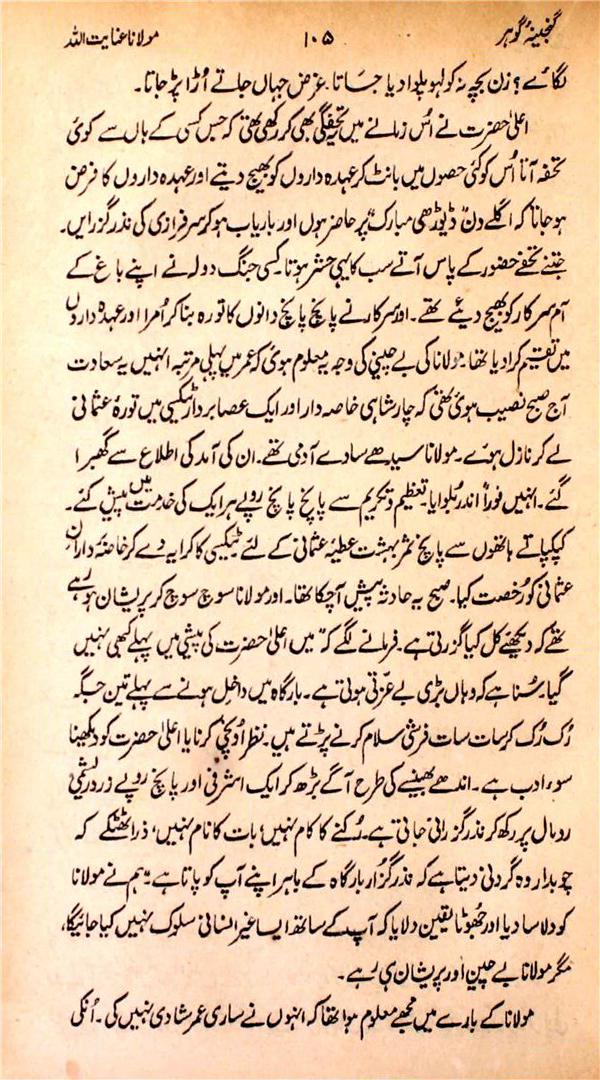 گنجینۂ گوہر ۱۰۵ مولانا عنایت اللہ
لگائے؟ زن بچہ نہ کولہو پلوا دیا جاتا۔ غرض جہاں جاتے اُڑا پڑ جاتا۔
اعلیٰ حضرت نے اُس زمانے میں تحیفگی بھی کر رکھی تھی کہ جس کسی کے ہاں سے کوئی
تحفہ آتا اُس کو کئی حصوں میں بانٹ کر عہدہ داروں کو بھیج دیتے اور عہدہ داروں کا فرض
ہو جاتا کہ اگلے دن ڈیوڑھی مبارک پر حاضر ہوں اور باریاب ہو کر سرفرازی کی نذر گزرائیں۔
جتنے تحفے حضور کے پاس آتے سب کا یہی حشر ہوتا۔ کسی جنگ دولہ نے اپنے باغ کے
آم سرکار کو بھیج دیئے تھے۔ اور سرکار نے پانچ پانچ دانوں کا تورہ بنا کر اُمرا اور عہدہ داروں
میں تقسیم کرا دیا تھا۔ مولانا کی بے چینی کی وجہ یہ معلوم ہوئی کہ عمر میں پہلی مرتبہ انہیں یہ سعادت
آج صبح نصیب ہوئی تھی کہ چار شاہی خاصہ دار اور ایک عصا بردار ٹیکسی میں تورۂ عثمانی
لے کر نازل ہوئے۔ مولانا سیدھے سادے آدمی تھے۔ ان کی آمد کی اطلاع سے گھبرا
گئے۔ انہیں فوراً اندر بُلوایا۔ تعظیم و تکریم سے پانچ پانچ روپے ہر ایک کی خدمت میں پیش کئے۔
کپکپاتے ہاتھوں سے پانچ ثمر بہشت عطیۂ عثمانی کے لئے ٹیکسی کا کرایہ دے کر خاصہ داران
عثمانی کو رخصت کیا۔ صبح یہ حادثہ پیش آ چکا تھا۔ اور مولانا سوچ سوچ کر پریشان ہو رہے
تھے کہ دیکھئے کل کیا گزرتی ہے۔ فرمانے لگے کہ "میں اعلیٰ حضرت کی پیشی میں پہلے کبھی نہیں
گیا۔ سُنا ہے کہ وہاں بڑی بے عزتی ہوتی ہے۔ بارگاہ میں داخل ہونے سے پہلے تین جگہ
رُک رُک کر سات سات فرشی سلام کرنے پڑتے ہیں۔ نظر اُونچی کرنا یا اعلیٰ حضرت کو دیکھنا
سوء ادب ہے۔ اندھے بھینسے کی طرح آگے بڑھ کر ایک اشرفی اور پانچ روپے زرد ریشمی
رومال پر رکھ کر نذر گزرانی جاتی ہے۔ رُکنے کا کام نہیں، بات کا نام نہیں، ذرا ٹھٹکے کہ
چوبدار وہ گردنی دیتا ہے کہ نذر گزار بارگاہ کے باہر اپنے آپ کو پاتا ہے۔" ہم نے مولانا
کو دلاسا دیا اور جھوٹا یقین دلایا کہ آپ کے ساتھ ایسا غیر انسانی سلوک نہیں کیا جائیگا،
مگر مولانا بے چین اور پریشان ہی رہے۔
مولانا کے بارے میں مجھے معلوم ہوا تھا کہ انہوں نے ساری عمر شادی نہیں کی۔ اُنکی